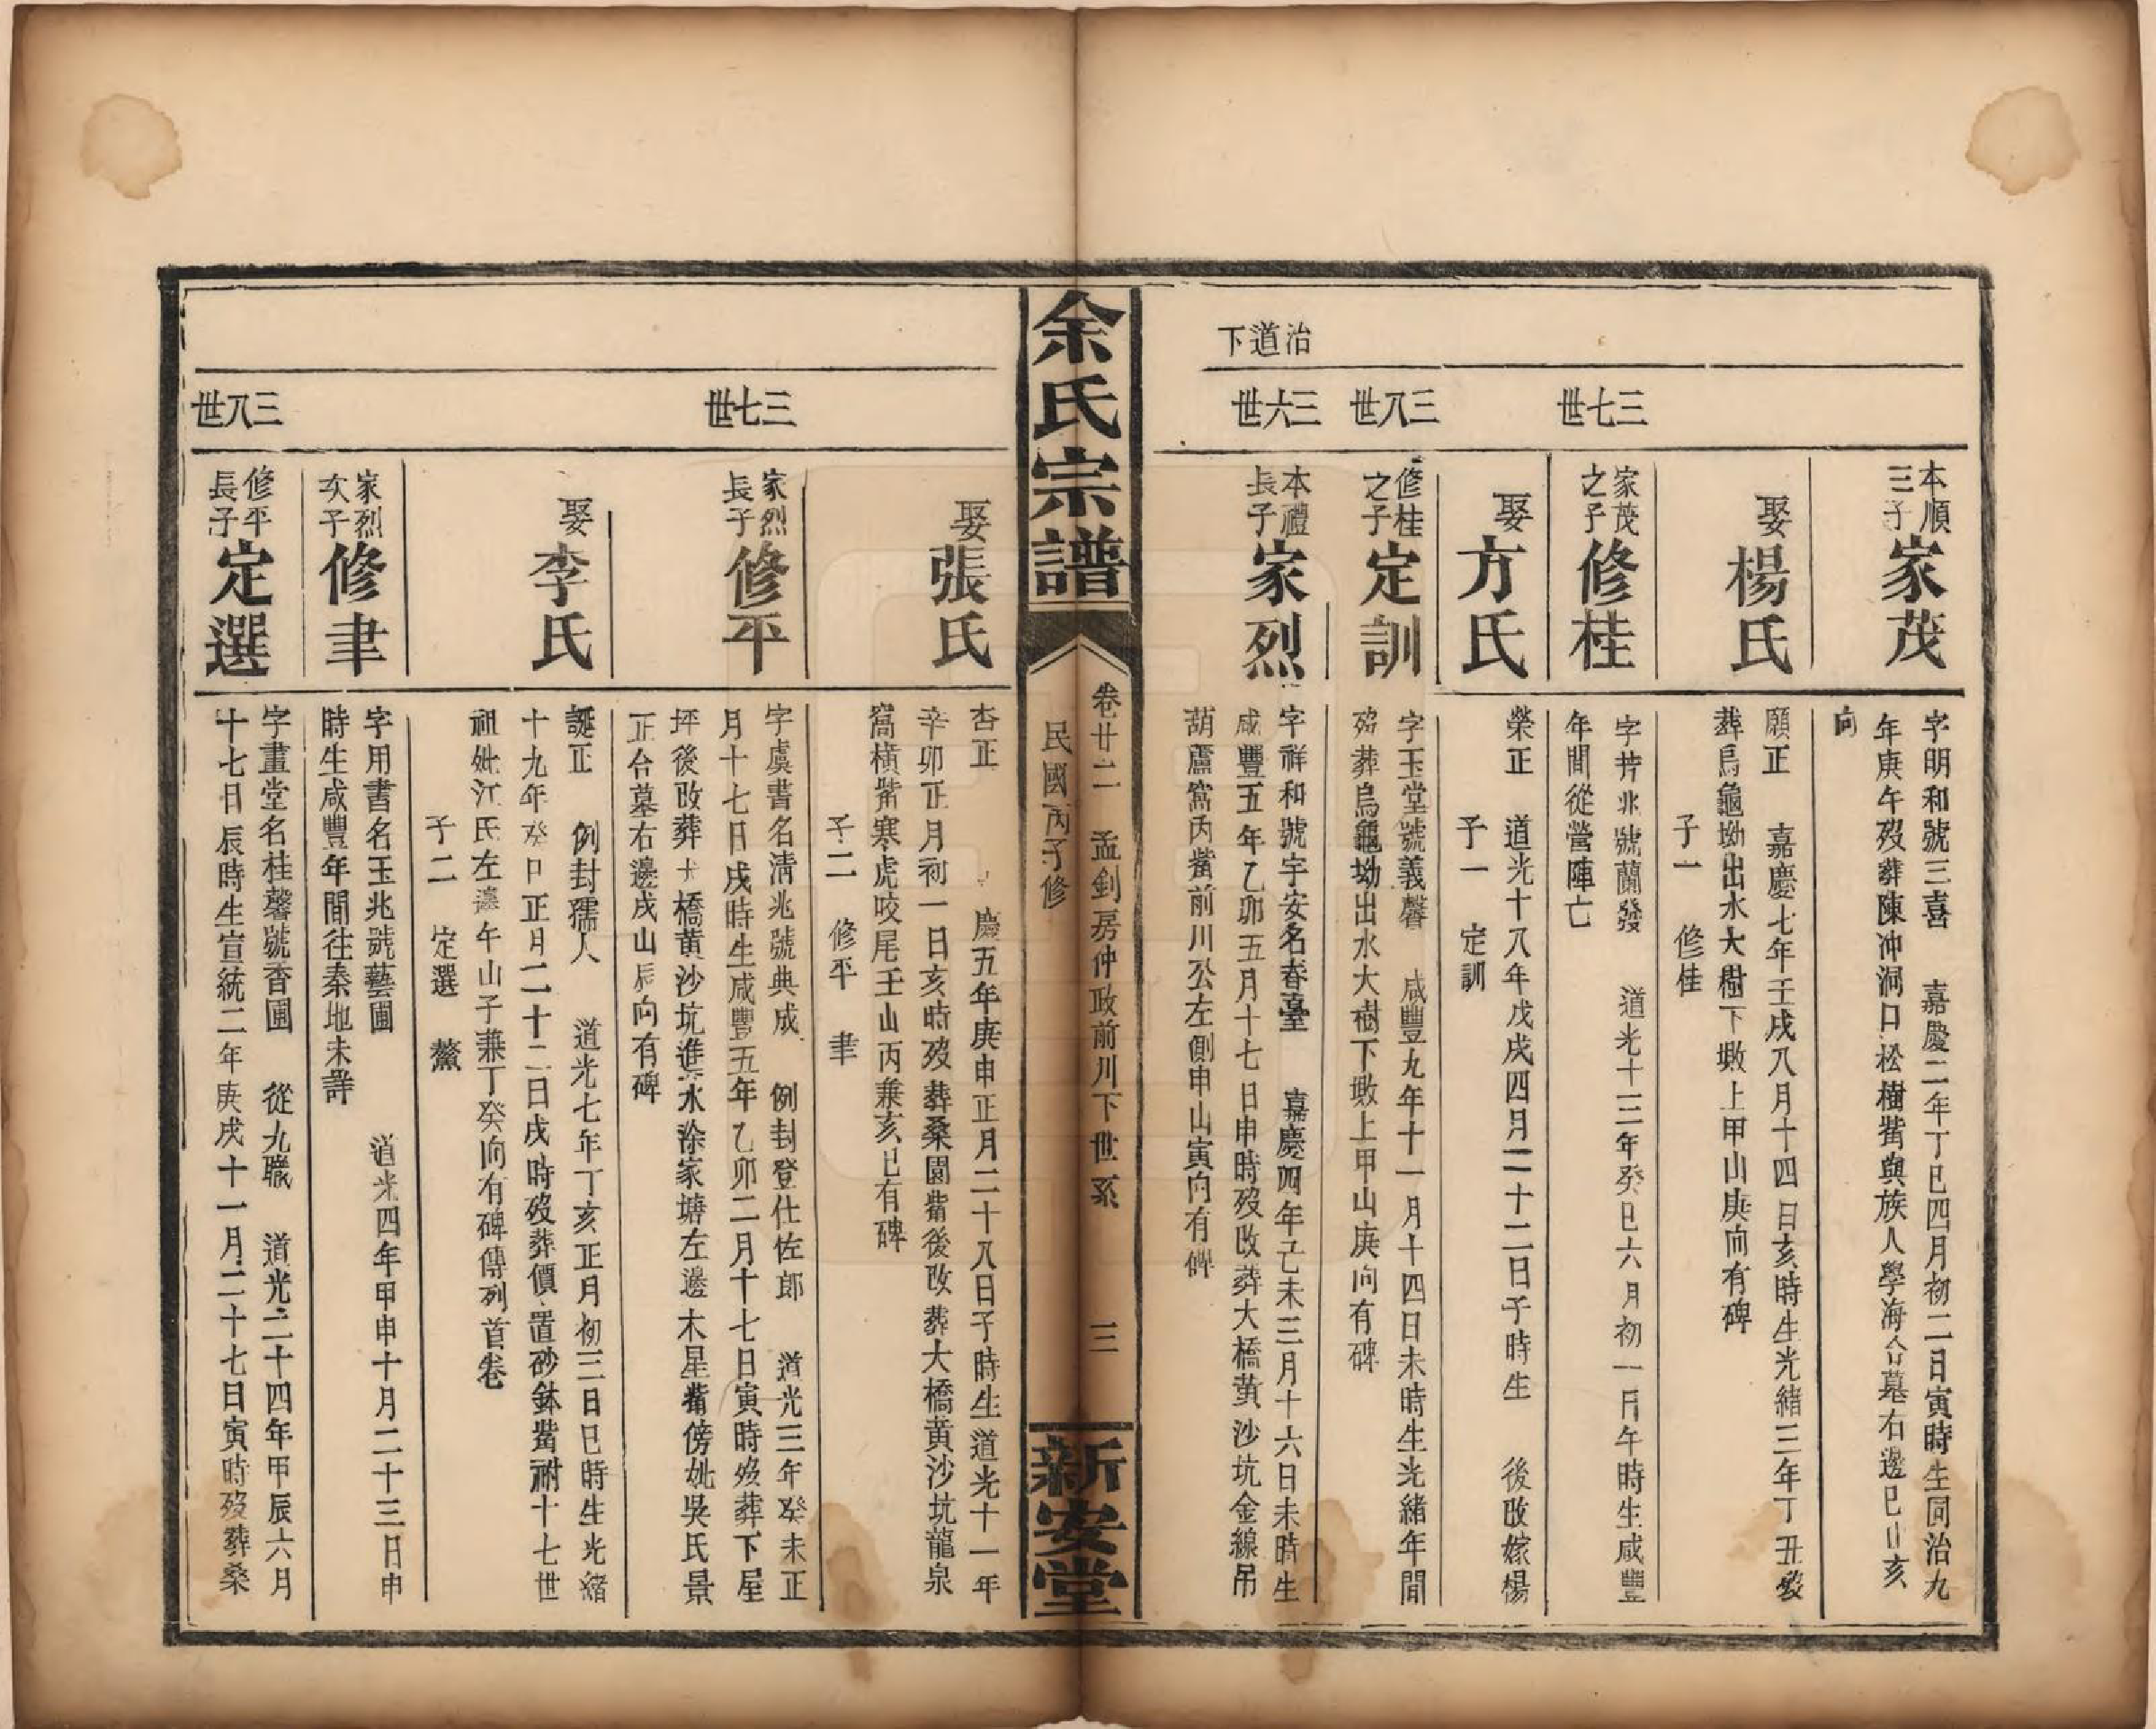 治道下
三七世
三八世
三六世
本順三子
家茂
字明和號三喜 嘉慶二年丁巳四月初二日寅時生同治九
年庚午歿葬陳冲洞口松樹嘴與族人學海合墓右邊巳山亥
向
娶楊氏
願正 嘉慶七年壬戌八月十四日亥時生光緒三年丁丑歿
葬烏龜坳出水大樹下墩上甲山庚向有碑
子一 修桂
家茂之子
修桂
字芳兆號蘭發 道光十三年癸巳六月初一日午時生咸豐
年間從營陣亡
娶方氏
榮正 道光十八年戊戌四月二十二日子時生 後改嫁楊
子一 定訓
修桂之子
定訓
字玉堂號義馨 咸豐九年十一月十四日未時生光緒年間
歿葬烏龜坳出水大樹下墩上甲山庚向有碑
本禮長子
家烈
字祥和號宇安名春臺 嘉慶四年己未三月十六日未時生
咸豐五年乙卯五月十七日申時歿改葬大橋黃沙坑金線吊
葫蘆窩丙嘴前川公左側申山寅向有碑
余氏宗譜
卷廿二 孟釗房仲政前川下世系 三
民國丙子修
新安堂
三七世
三八世
娶張氏
杏正 慶五年庚申正月二十八日子時生道光十一年
辛卯正月初一日亥時歿葬桑園嘴後改葬大橋黃沙坑龍泉
窩橫嘴寒虎咬尾壬山丙兼亥巳有碑
子二 修平 聿
家烈長子
修平
字虞書名清兆號典成 例封登仕佐郎 道光三年癸未正
月十七日戌時生咸豐五年乙卯二月十七日寅時歿葬下屋
坪後改葬大橋黃沙坑進水涂家塘左邊木星嘴傍妣吳氏景
正合墓右邊戌山辰向有碑
娶李氏
誕正 例封孺人 道光七年丁亥正月初三日巳時生光緒
十九年癸巳正月二十二日戌時歿葬價置砂鉢嘴祔十七世
祖妣江氏左邊午山子兼丁癸向有碑傳列首卷
子二 定選 鰲
家烈次子
修聿
字用書名玉兆號藝圃 道光四年甲申十月二十三日申
時生咸豐年間往秦地未詳
修平長子
定選
字畫堂名桂馨號香圃 從九職 道光二十四年甲辰六月
十七日辰時生宣統二年庚戌十一月二十七日寅時歿葬桑